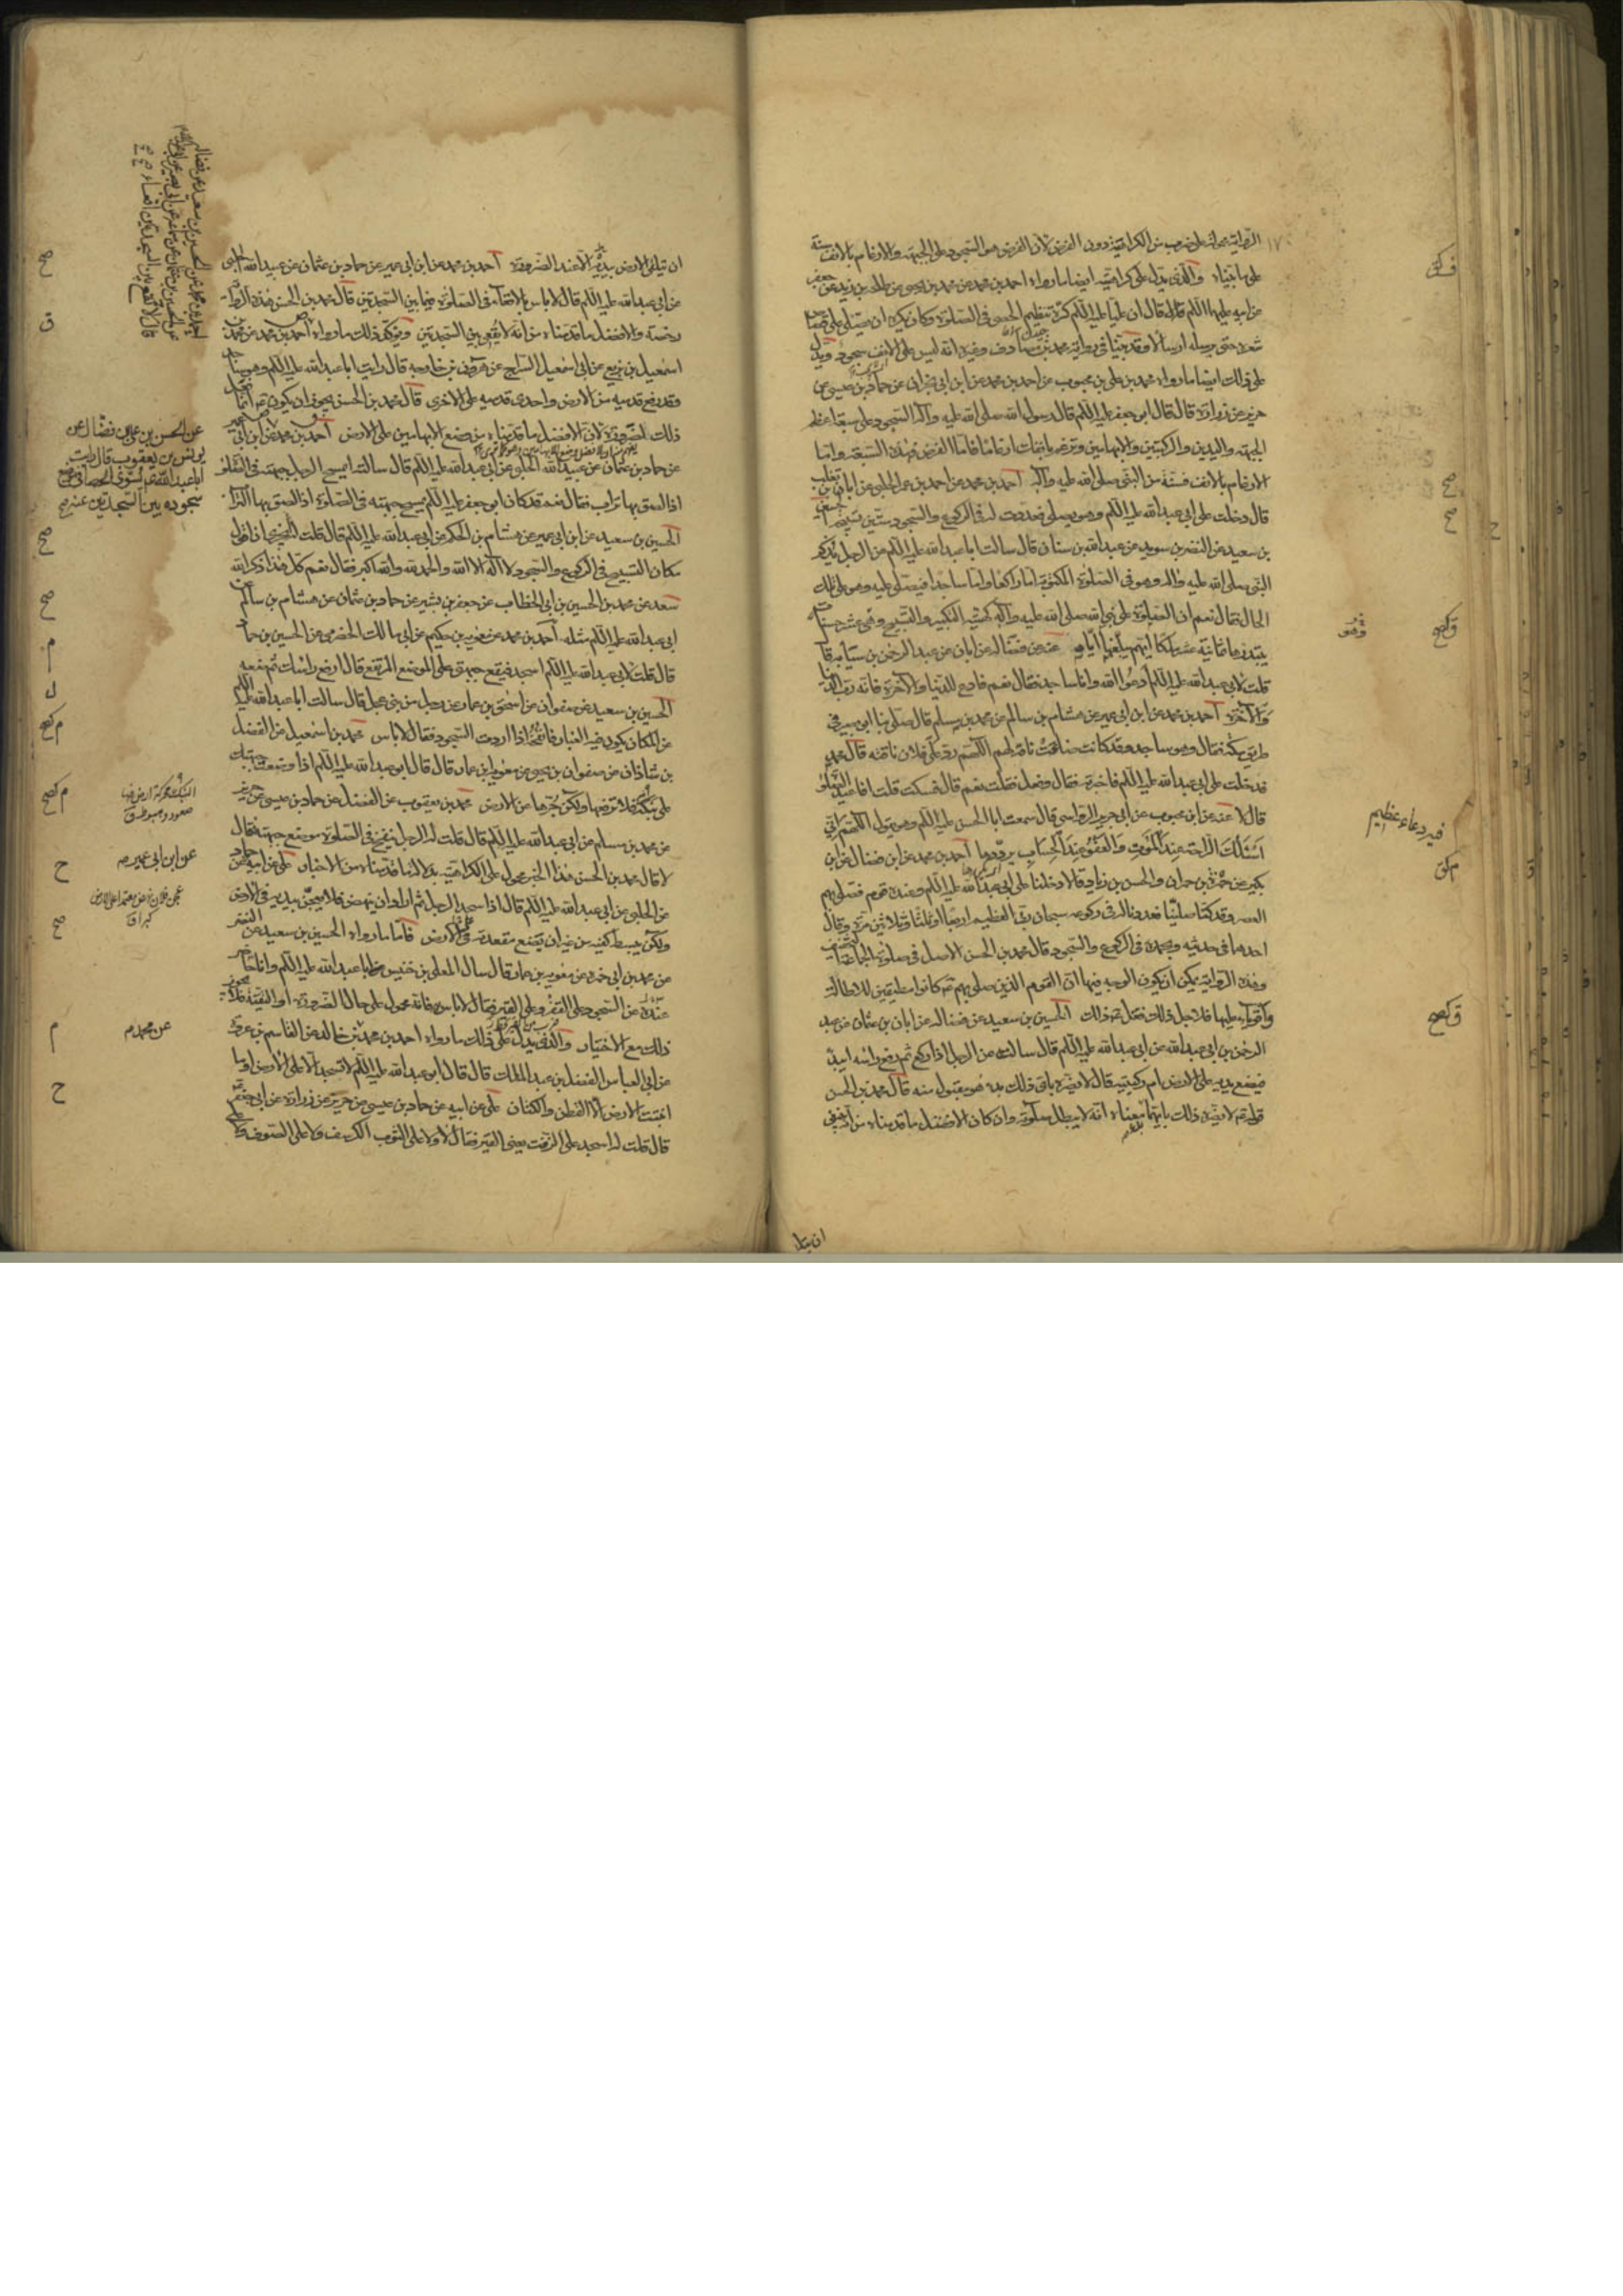 الرواية محمولة على ضرب من الكراهية دون الفرض لأن الفرض هو السجود على الجبهة والارغام بالانف سنة
على ما بيناه والذي يدل على كراهيته ايضا ما رواه احمد بن محمد عن محمد بن يحيى عن طلحة بن زيد عن جعفر
عن ابيه عليهما السلم قال قال ان عليا عليه السلم كره تنظيم الحصى في الصلوة وكان يكره ان يصلي على قصاص
شعره حتى يرسله ارسالا وقد بينا في رواية محمد بن مصادف وفيه انه ليس على الانف سجود ويدل
على ذلك ايضا ما رواه محمد بن علي بن محبوب عن احمد بن محمد عن ابن ابي نجران عن حماد بن عيسى عن
حريز عن زرارة قال قال ابو جعفر عليه السلم قال رسول الله صلى الله عليه وآله السجود على سبعة اعظم
الجبهة واليدين والركبتين والابهامين وترغم بانفك ارغاما فاما الفرض فهذه السبعة واما
الارغام بالانف فسنة من النبي صلى الله عليه وآله احمد بن محمد عن احمد بن عمر الحلبي عن ابان بن تغلب
قال دخلت على ابي عبد الله عليه السلم وهو يصلي فعددت له في الركوع والسجود ستين تسبيحة الحسين
بن سعيد عن النضر بن سويد عن عبد الله بن سنان قال سالت ابا عبد الله عليه السلم عن الرجل يذكر
النبي صلى الله عليه وآله وهو في الصلوة المكتوبة اما راكعا واما ساجدا فيصلي عليه وهو على تلك
الحال فقال نعم ان الصلوة على نبي الله صلى الله عليه وآله كهيئة التكبير والتسبيح وهي عشر حسنات
يبتدرها ثمانية عشر ملكا ايهم يبلغها اياه عنه عن فضالة عن ابان عن عبد الرحمن بن سيابة قال
قلت لابي عبد الله عليه السلم ادعو الله وانا ساجد فقال نعم فادع للدنيا والآخرة فانه رب الدنيا
والآخرة احمد بن محمد عن ابن ابي عمير عن هشام بن سالم عن محمد بن مسلم قال صلى بنا ابو بصير في
طريق مكة فقال وهو ساجد وقد كانت ضاعت ناقة لهم اللهم رد على فلان ناقته قال محمد
فدخلت على ابي عبد الله عليه السلم فاخبرته فقال وفعل فقلت نعم قال فسكت قلت افاعيد الصلوة
قال لا عنه عن ابن محبوب عن ابي جرير الرواسي قال سمعت ابا الحسن عليه السلم وهو يقول اللهم اني
اسئلك الراحة عند الموت والعفو عند الحساب يرددها احمد بن محمد عن ابن فضال عن ابن
بكير عن حمزة بن حمران والحسن بن زياد قالا دخلنا على ابي عبد الله عليه السلم وعنده قوم فصلى بهم
العصر وقد كنا صلينا فعددنا له في ركوعه سبحان ربي العظيم اربعا او ثلثا وثلاثين مرة وقال
احدهما في حديثه وبحمده في الركوع والسجود قال محمد بن الحسن الاصل في صلوة الجماعة التخفيف
وهذه الرواية يمكن ان يكون الوجه فيها ان القوم الذين صلى بهم كانوا مطيقين للاطالة
واقوياء عليها فلاجل ذلك فعل ذلك الحسين بن سعيد عن فضالة عن ابان بن عثمان عن عبد
الرحمن بن ابي عبد الله عن ابي عبد الله عليه السلم قال سالته عن الرجل اذا ركع ثم رفع راسه ايبدأ
فيضع يديه على الارض ام ركبتيه قال لا يضره باي ذلك بدء هو مقبول منه قال محمد بن الحسن
قوله لا يضره ذلك بايهما بدء معناه انه لا يبطل صلوته وان كان الافضل ما قدمناه من انه ينبغي
فيه دعاء عظيم
ان يتلقى
ان يتلقى الارض بيديه الا عند الضرورة احمد بن محمد عن ابن ابي عمير عن حماد بن عثمان عن عبيد الله الحلبي
عن ابي عبد الله عليه السلم قال لا باس بالاقعاء في الصلوة فيما بين السجدتين قال محمد بن الحسن هذه الرواية
رخصة والافضل ما قدمناه من انه لا يقعي بين السجدتين ويؤكد ذلك ما رواه احمد بن محمد عن محمد بن
اسمعيل بن بزيع عن ابي اسمعيل السراج عن هرون بن خارجة قال رايت ابا عبد الله عليه السلم وهو ساجد
وقد رفع قدميه من الارض واحدى قدميه على الاخرى قال محمد بن الحسن يجوز ان يكون انما فعل
ذلك لضرورة لان الافضل ما قدمناه من وضع الابهامين على الارض احمد بن محمد عن ابن ابي عمير
عن حماد بن عثمان عن عبيد الله الحلبي عن ابي عبد الله عليه السلم قال سالته ايمسح الرجل جبهته في الصلوة
اذا لصق بها تراب فقال نعم قد كان ابو جعفر عليه السلم يمسح جبهته في الصلوة اذا لصق بها التراب
الحسين بن سعيد عن ابن ابي عمير عن هشام بن الحكم عن ابي عبد الله عليه السلم قال قلت له ايجزي ان اقول
مكان التسبيح في الركوع والسجود لا اله الا الله والحمد لله والله اكبر فقال نعم كل هذا ذكر الله
سعد عن محمد بن الحسين بن ابي الخطاب عن جعفر بن بشير عن حماد بن عثمان عن هشام بن سالم عن
ابي عبد الله عليه السلم مثله احمد بن محمد عن معوية بن حكيم عن ابي مالك الحضرمي عن الحسين بن حماد
قال قلت لابي عبد الله عليه السلم اسجد فتقع جبهتي على الموضع المرتفع قال ارفع راسك ثم ضعه
الحسين بن سعيد عن صفوان عن اسحق بن عمار عن رجل من بني عجل قال سالت ابا عبد الله عليه السلم
عن المكان يكون فيه الغبار فانفخه اذا اردت السجود فقال لا باس محمد بن اسمعيل عن الفضل
بن شاذان عن صفوان بن يحيى عن معوية بن عمار قال قال ابو عبد الله عليه السلم اذا وضعت جبهتك
على نبكة فلا ترفعها ولكن جرها على الارض محمد بن يعقوب عن الفضل عن حماد بن عيسى عن حريز
عن محمد بن مسلم عن ابي عبد الله عليه السلم قال قلت له الرجل ينفخ في الصلوة موضع جبهته فقال
لا قال محمد بن الحسن هذا الخبر محمول على الكراهية بدلالة ما قدمناه من الاخبار علي عن ابيه عن حماد
عن الحلبي عن ابي عبد الله عليه السلم قال اذا سجد الرجل ثم اراد ان ينهض فلا يعجن بيديه في الارض
ولكن يبسط كفيه من غير ان يضع مقعدته في الارض فاما ما رواه الحسين بن سعيد عن النضر
عن محمد بن ابي حمزة عن معوية بن عمار قال سال المعلى بن خنيس ابا عبد الله عليه السلم وانا حاضر
عنده عن السجود على القفر وعلى القير فقال لا باس به فانه محمول على حال الضرورة او التقية فلا يجوز
ذلك مع الاختيار والذي يدل على ذلك ما رواه احمد بن محمد بن خالد عن القاسم بن عروة
عن ابي العباس الفضل بن عبد الملك قال قال ابو عبد الله عليه السلم لا تسجد الا على الارض او ما
انبتت الارض الا القطن والكتان علي عن ابيه عن حماد بن عيسى عن حريز عن زرارة عن ابي جعفر
قال قلت له اسجد على الزفت يعني القير فقال لا ولا على الثوب الكرسف ولا على الصوف ولا على
عن الحسن بن علي بن فضال عن
يونس بن يعقوب قال رايت
ابا عبد الله ع يسوي الحصا في موضع
سجوده بين السجدتين
عن ابن ابي عمير
عن محمد